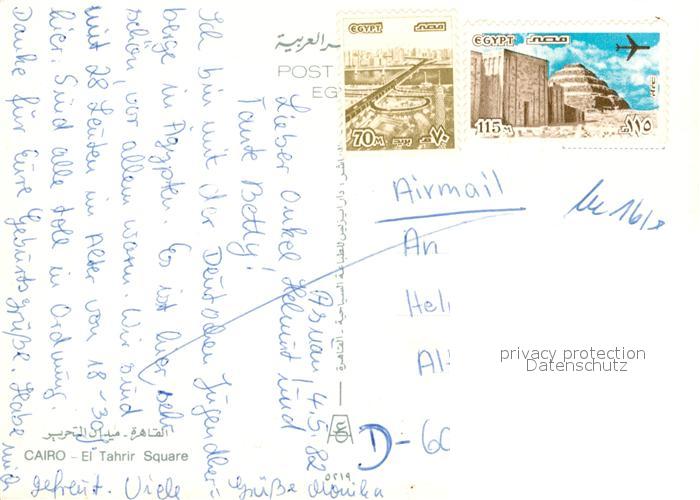 EGYPT مصر
70M بريد ٧٠م
EGYPT مصر
115M ١١٥
POST
EG
Airmail
An
Hel
D-60
privacy protection
Datenschutz
Assuan 14.5.82
Lieber Onkel Helmut und
Tante Betty!
Ich bin mit der Deutschen Jugendher-
berge in Ägypten. Es ist hier sehr
schön, vor allem warm. Wir sind
mit 28 Leuten im Alter von 18-30
hier. Sind alle toll in Ordnung.
Danke für Eure Geburtsgrüße. Habe mich
gefreut. Viele Grüße Monika
القاهرة - ميدان التحرير
CAIRO - El Tahrir Square
٥٢١٩